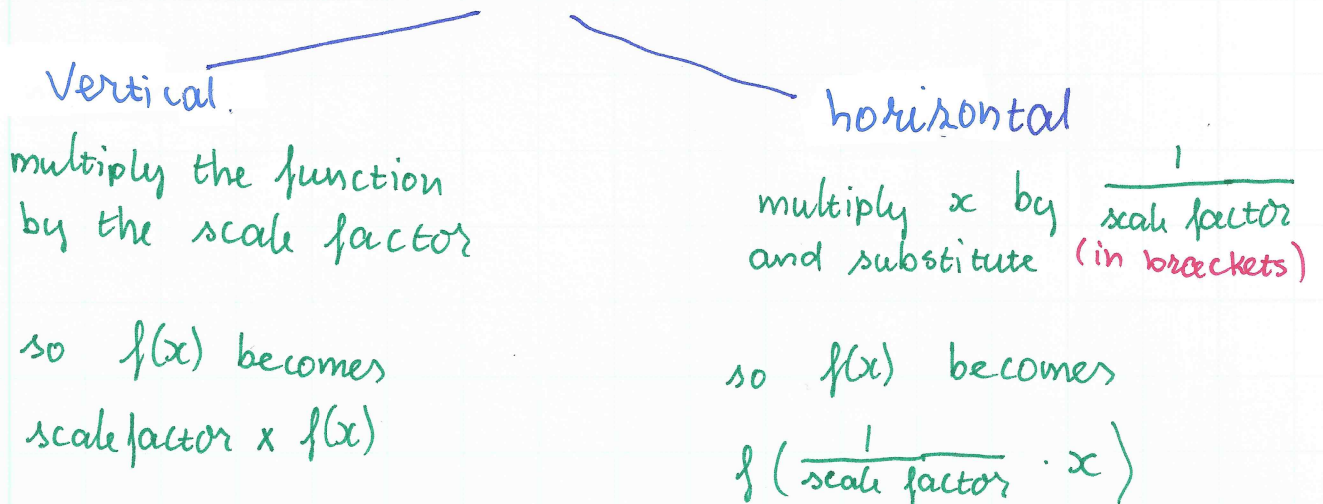 Vertical.
multiply the function
by the scale factor
so f(x) becomes
scale factor x f(x)
horisontal
multiply x by 1/scale factor
and substitute (in brackets)
so f(x) becomes
f(1/scale factor · x)